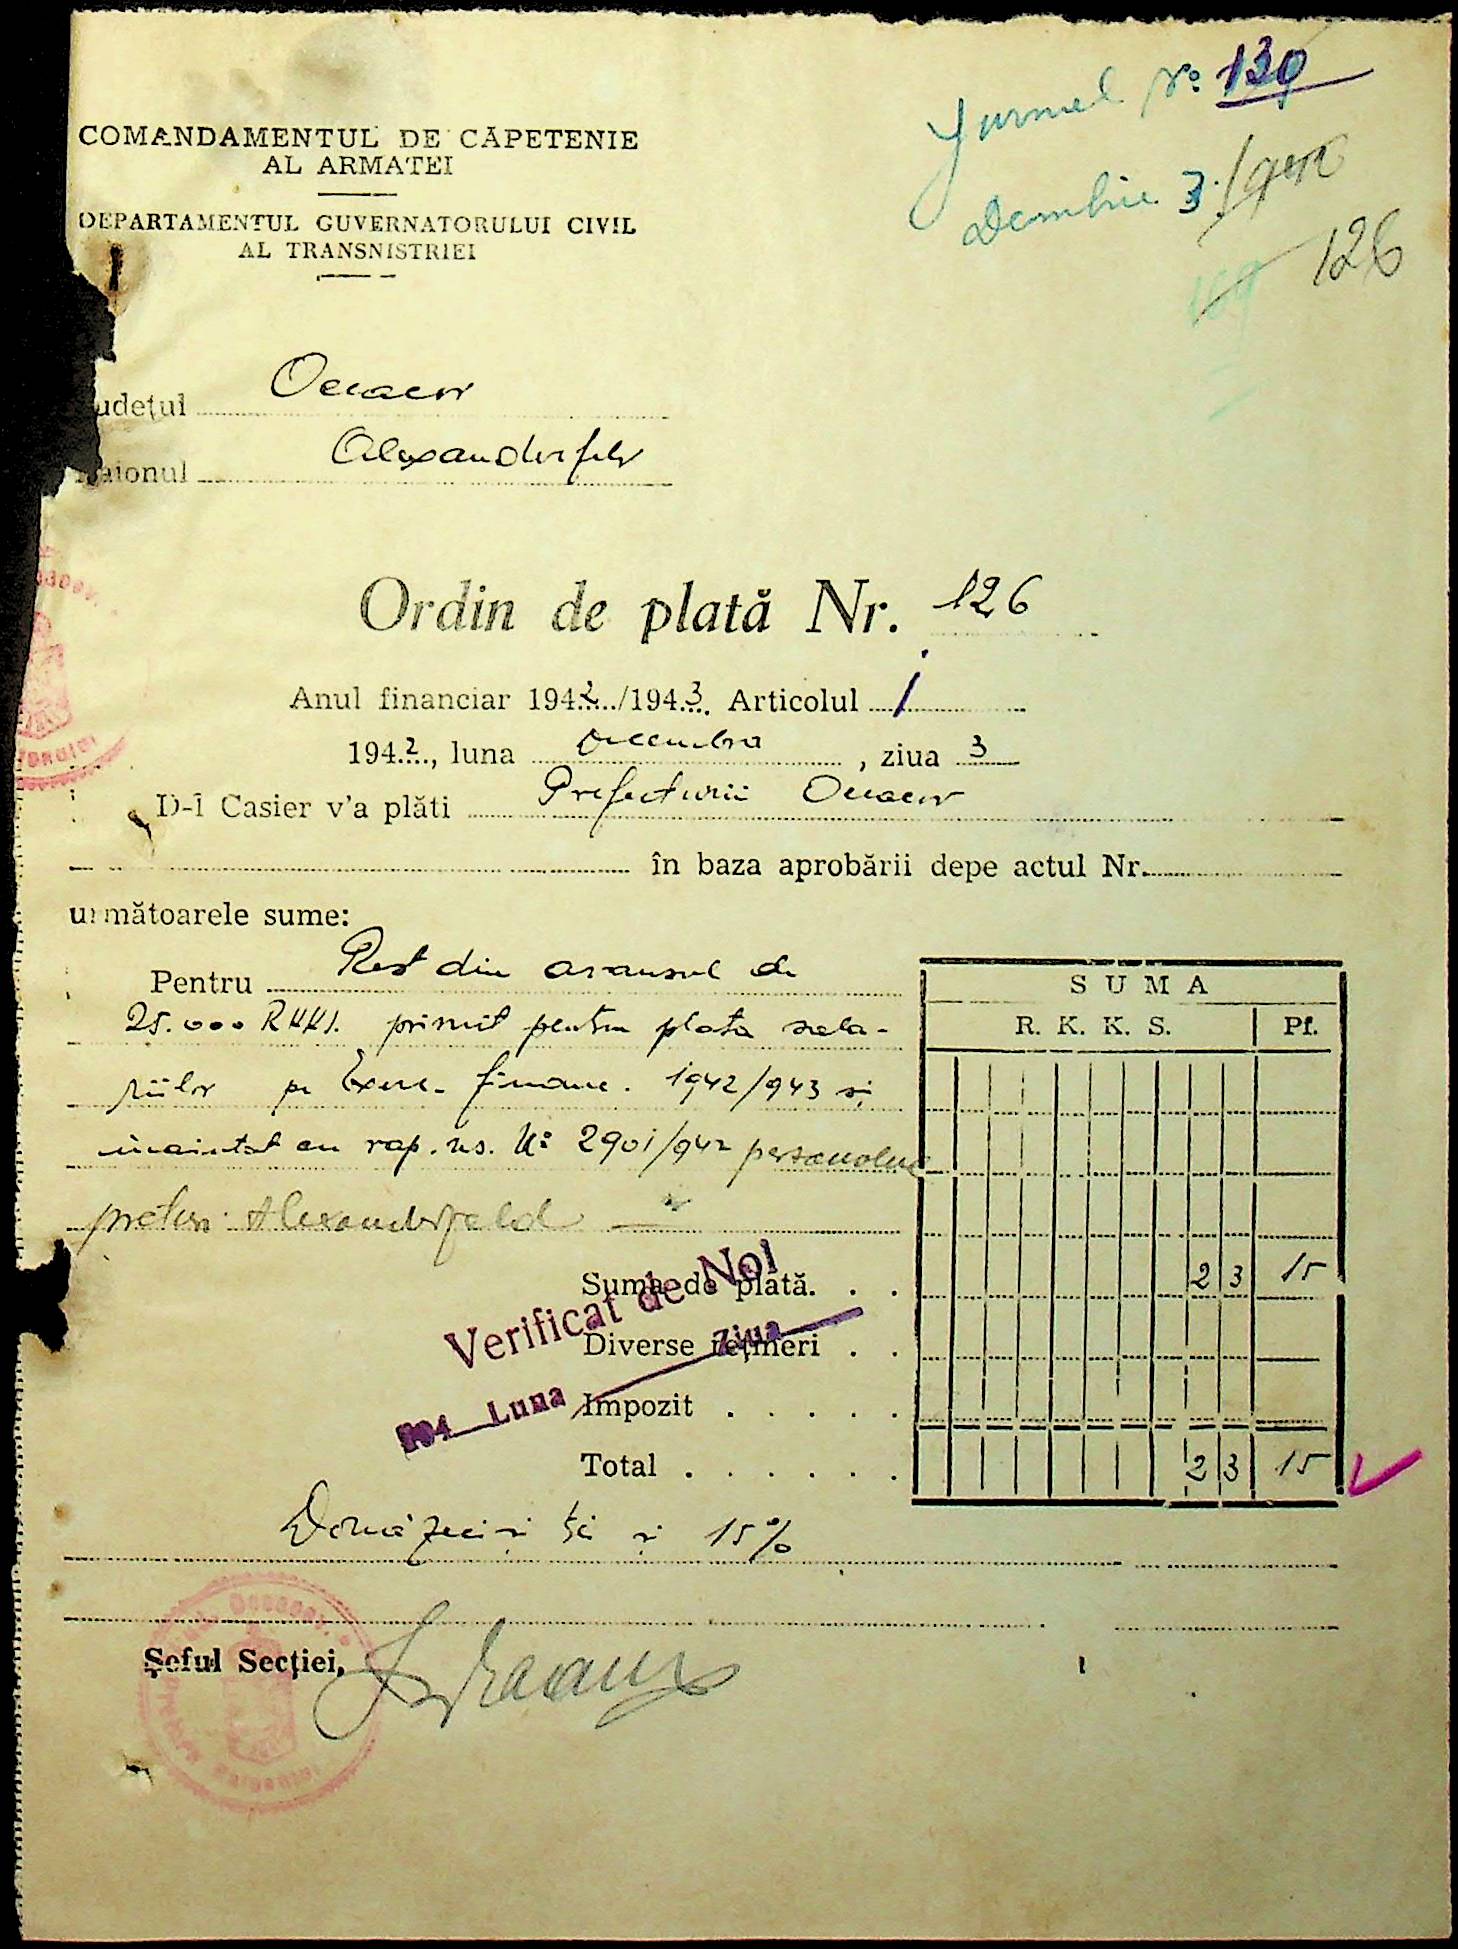 Jurnal No: 130
Decembrie 3 / 942
169 126
COMANDAMENTUL DE CĂPETENIE
AL ARMATEI
DEPARTAMENTUL GUVERNATORULUI CIVIL
AL TRANSNISTRIEI
udeţul Oceacov
aionul Alexanderfeld
Ordin de plată Nr. 126
Anul financiar 1942/1943. Articolul 1
1942, luna Decembrie, ziua 3
D-l Casier v'a plăti Prefecturii Oceacov
în baza aprobării depe actul Nr.
următoarele sume:
Pentru Rest din avansul de
25.000 RKKS. primit pentru plata sala-
riilor pe Exerc. financ. 1942/943 și
înaintat cu rap. ns. No: 2901/942 personalului
preturi Alexanderfeld
SUMA
R. K. K. S. Pf.
Suma de plată. . . 23 15
Diverse reţineri . .
Impozit . . . . .
Total . . . . . . 23 15
Verificat de Noi
194 Luna Ziua
Douăzeci și trei și 15%
Şeful Secţiei,